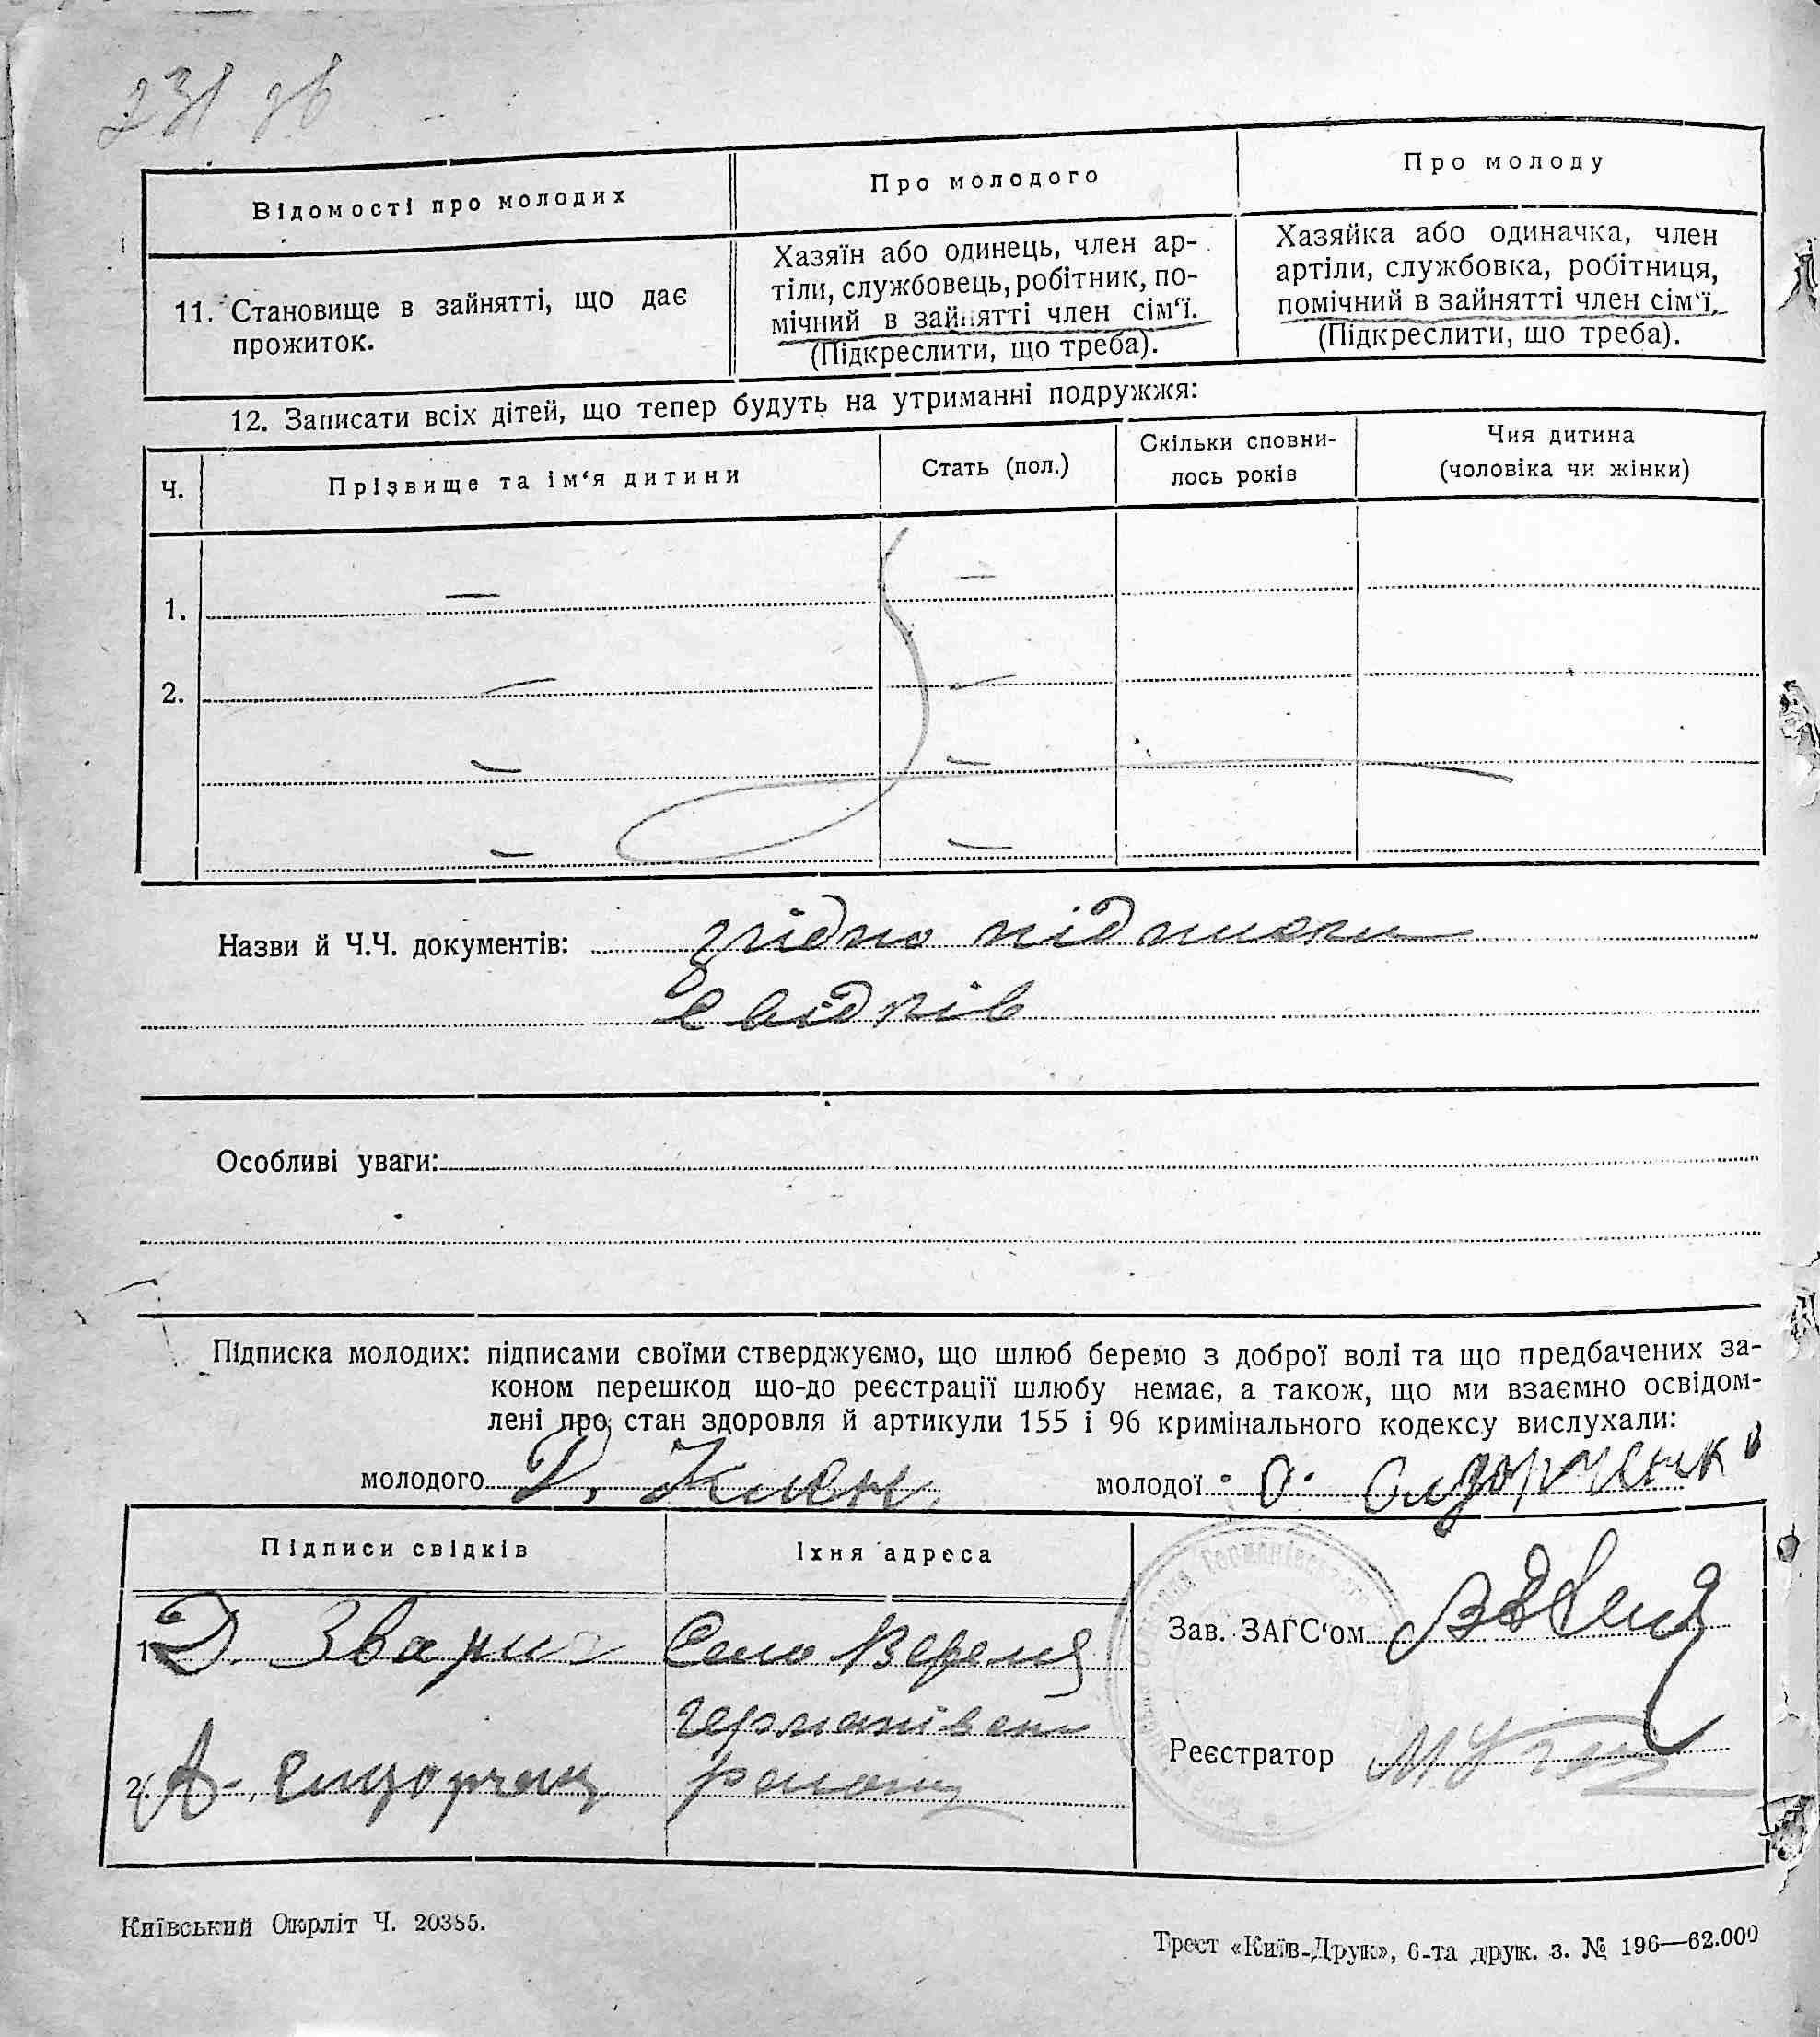 231 зв
Відомості про молодих
Про молодого
Про молоду
11. Становище в зайнятті, що дає
прожиток.
Хазяїн або одинець, член ар-
тіли, службовець, робітник, по-
мічний в зайнятті член сім‘ї.
(Підкреслити, що треба).
Хазяйка або одиначка, член
артіли, службовка, робітниця,
помічний в зайнятті член сім‘ї.
(Підкреслити, що треба).
12. Записати всіх дітей, що тепер будуть на утриманні подружжя:
Ч.
Прізвище та ім‘я дитини
Стать (пол.)
Скільки сповни-
лось років
Чия дитина
(чоловіка чи жінки)
1. — —
2. — —
— —
— —
Назви й Ч.Ч. документів: згідно підписки
свідків
Особливі уваги:
Підписка молодих: підписами своїми стверджуємо, що шлюб беремо з доброї волі та що предбачених за-
коном перешкод що-до реєстрації шлюбу немає, а також, що ми взаємно освідом-
лені про стан здоровля й артикули 155 і 96 кримінального кодексу вислухали:
молодого Д.
молодої О. Сидорченкѡ
Підписи свідків
Їхня адреса
1. Д. Зварич
Село Веремя
Германівськ
2. А. Сидорченк
району
Зав. ЗАГС‘ом
Реєстратор
Київський Окрліт Ч. 20385.
Трест «Київ-Друк», 6-та друк. з. № 196—62.000